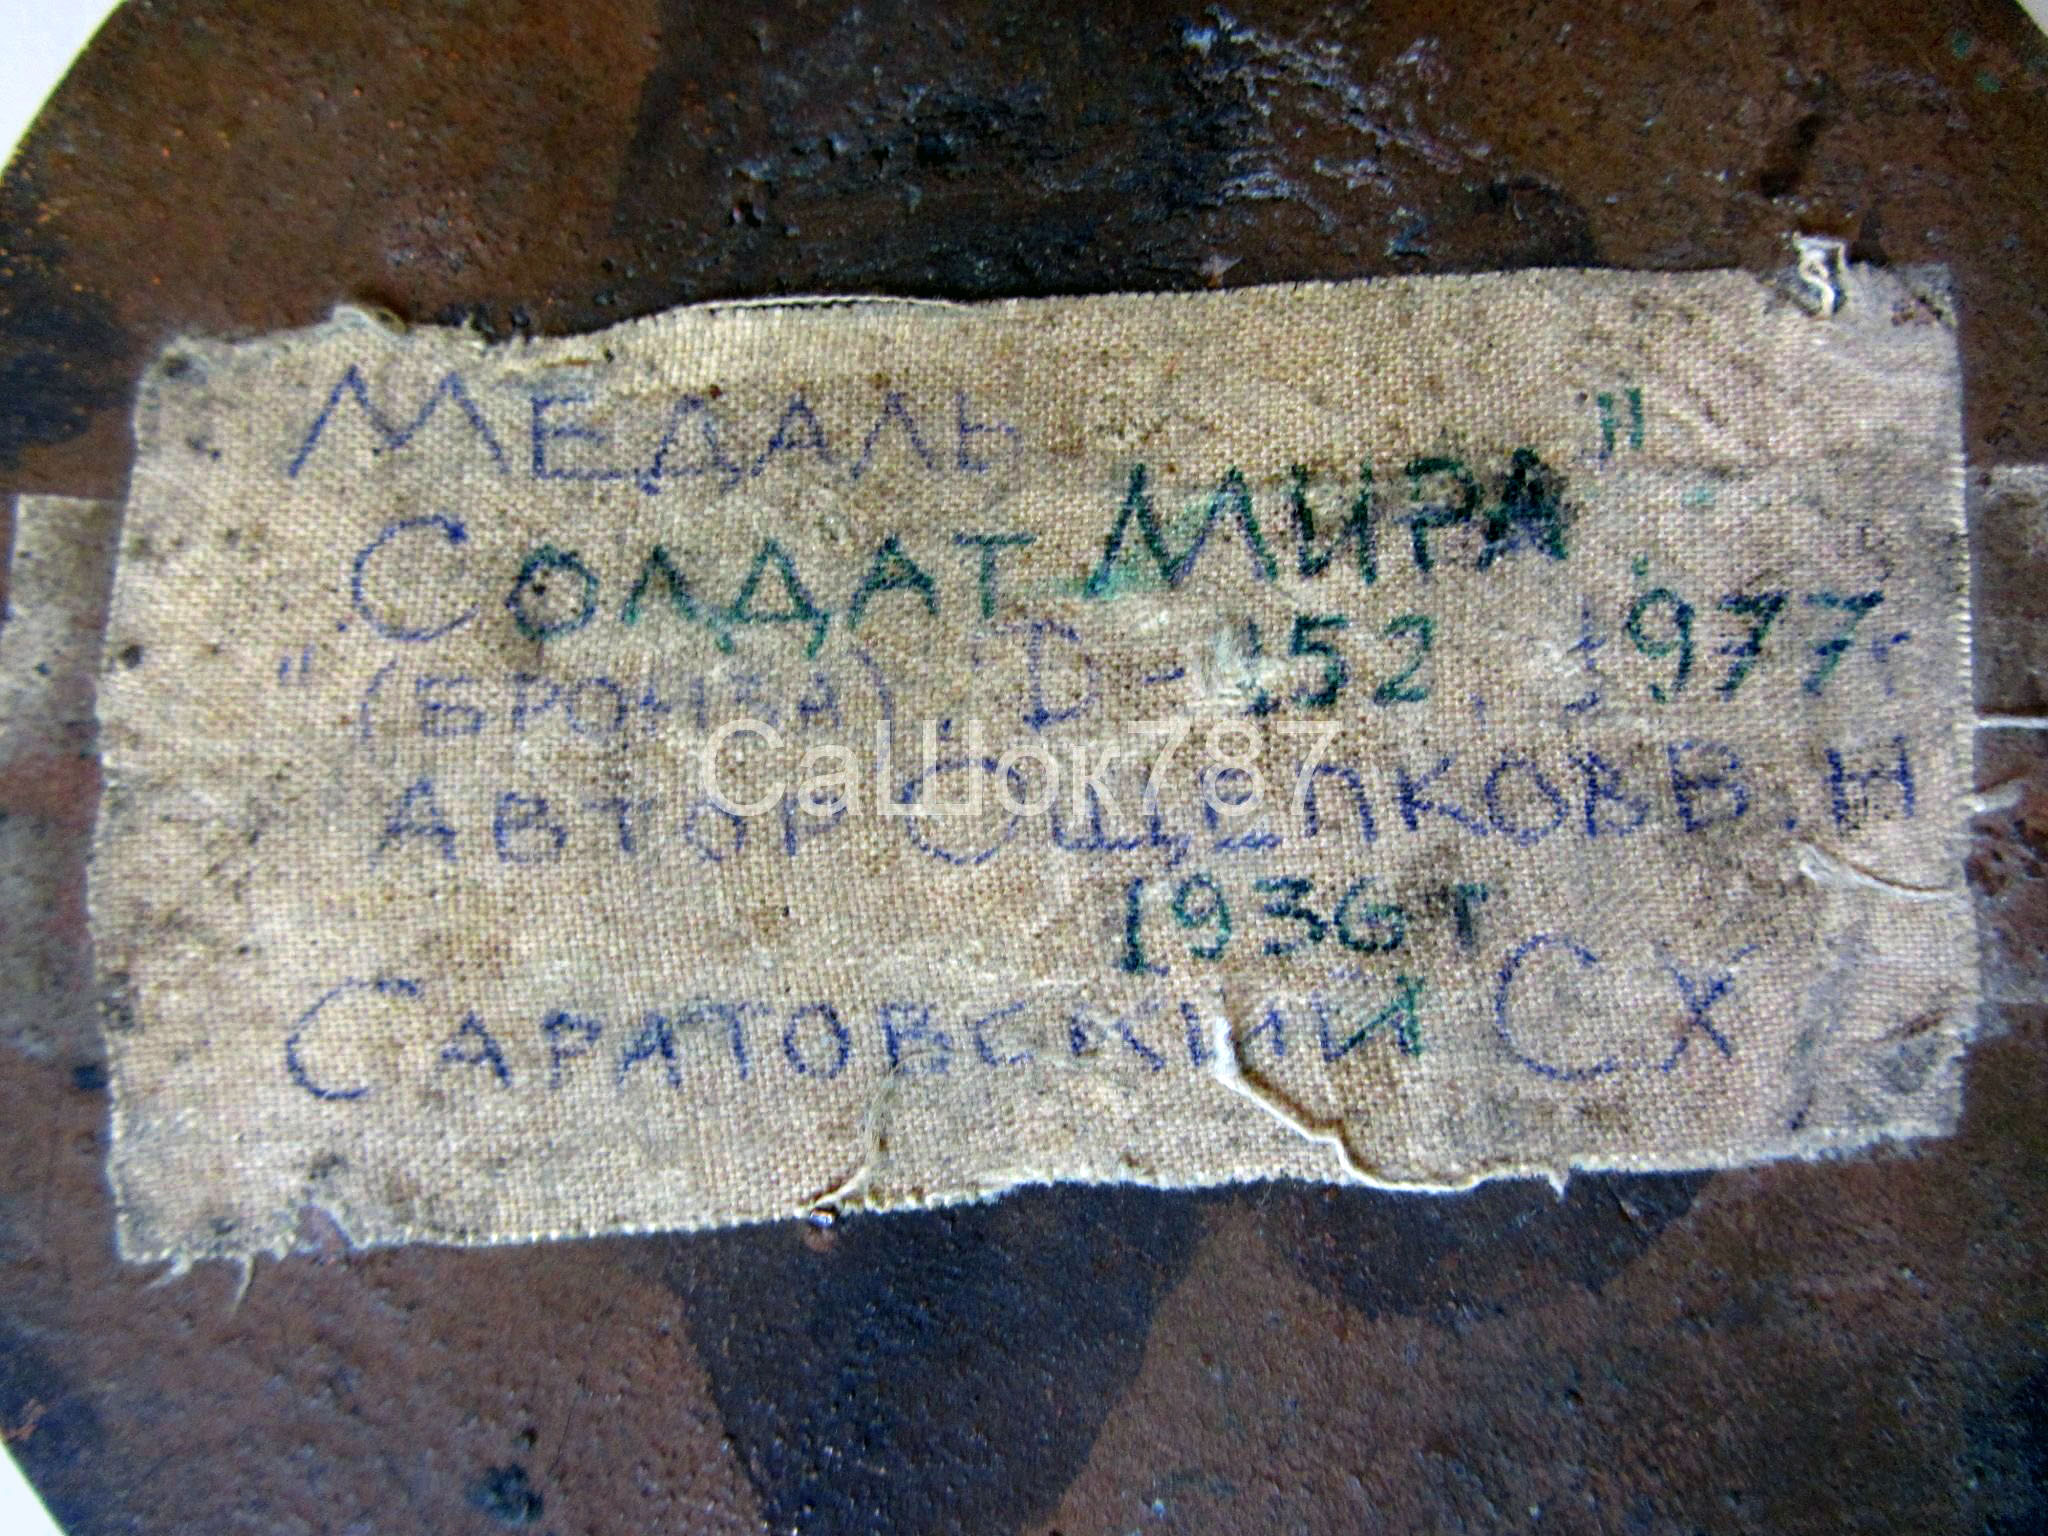 МЕДАЛЬ
"СОЛДАТ МИРА"
(БРОНЗА), D-252, 1977г
СаШок787
АВТОР ОЩЕПКОВ В.Н
1936г
САРАТОВСКИЙ СХ